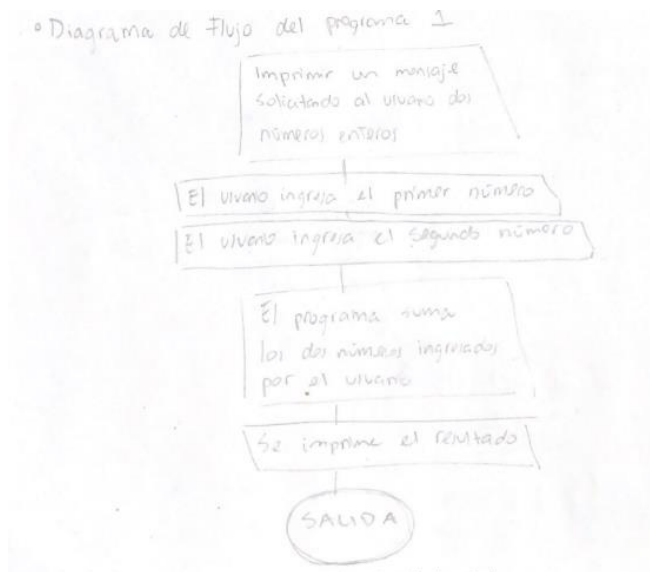 ° Diagrama de Flujo del programa 1
Imprimir un mensaje
solicitando al usuario dos
números enteros
El usuario ingresa el primer número
El usuario ingresa el segundo número
El programa suma
los dos números ingresados
por el usuario
Se imprime el resultado
SALIDA